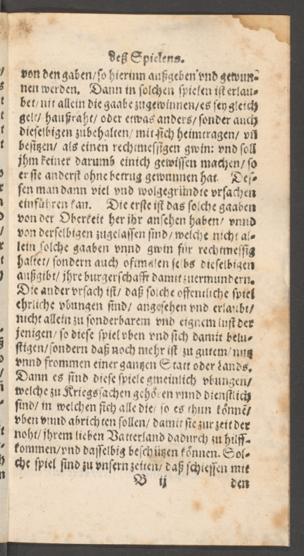 deß Spielens.
von den gaben/ so hierinn außgeben vnd gewun-
nen werden. Dann in solchen spielen ist erlau-
bet/ nit allein die gaabe zugewinnen/ es sey gleich
gelt/ haußraht/ oder etwas anders/ sonder auch
dieselbigen zubehalten/ mit sich heimtragen/ vñ
besitzen/ als einen rechtmessigen gwin: vnd soll
jhm keiner darumb einich gewissen machen/ so
er sie anderst ohne betrug gewunnen hat. Des-
sen man dann viel vnd wolgegründte vrsachen
einführen kan. Die erste ist das solche gaaben
von der Oberkeit her jhr ansehen haben/ vnnd
von derselbigen zugelassen sind/ welche nicht al-
lein solche gaaben vnnd gwin für rechtmessig
haltet/ sondern auch oftmalen selbs dieselbigen
außgibt/ jhre burgerschafft damit zuermundern.
Die ander vrsach ist/ daß solche offentliche spiel
ehrliche vbungen sind/ angesehen vnd erlaubt/
nicht allein zu sonderbarem vnd eignem lust der
jenigen/ so diese spiel vben vnd sich damit belu-
stigen/ sondern daß noch mehr ist zu gutem/ nutz
vnnd frommen einer gantzen Statt oder Lands.
Dann es sind diese spiele gmeinlich vbungen/
welche zu Kriegssachen gehören vnnd dienstlich
sind/ in welchen sich alle die/ so es thun könnē/
vben vnnd abrichten sollen/ damit sie zur zeit der
noht/ jhrem lieben Vatterland dadurch zu hilff-
kommen/ vnd dasselbig beschützen können. Sol-
che spiel sind zu vnsern zeiten/ daß schiessen mit
B ij den